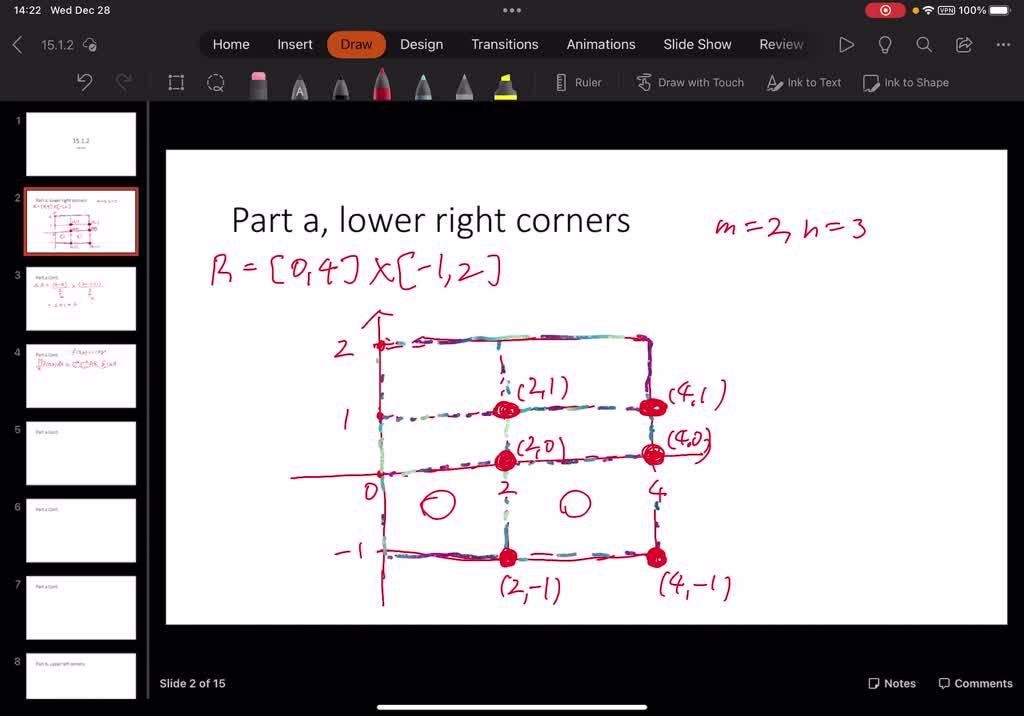 14:22 Wed Dec 28
VPN 100%
15.1.2
Home Insert Draw Design Transitions Animations Slide Show Review
A Ruler Draw with Touch Ink to Text Ink to Shape
1
15.1.2
2
3
4
5
6
7
8
Part a, lower right corners
m=2, n=3
R=[0,4]×[-1,2]
2
(2,1)
(4,1)
1
(2,0)
(4,0)
0
2
4
-1
(2,-1)
(4,-1)
Slide 2 of 15
Notes Comments